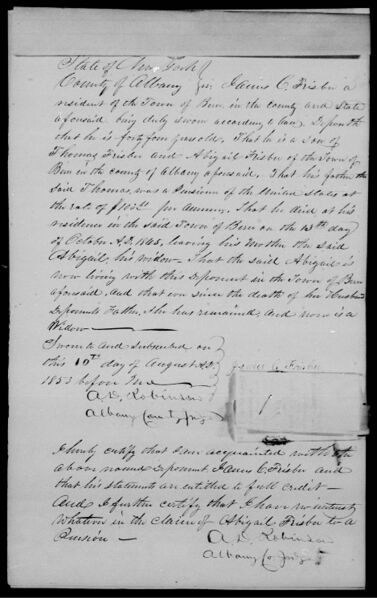 State of New York
County of Albany ss James C. Frisbu a
resident of the Town of Bern, in the county and State
aforesaid being duly sworn according to law, Deposeth
that he is forty four years old, That he is a son of
Thomas Frisbu and Abigail Frisbu of the Town of
Bern in the county of Albany aforesaid, that his father, the
said Thomas, was a Pensioner of the United States at
the rate of per annum, that he died at his
residence in the said Town of Bern on the 15th day
of October A.D. 1845, leaving his Mother the said
Abigail, his widow - That the said Abigail is
now living with this Deponent in the Town of Bern
aforesaid, and that ever since the death of her Husband
Deponents Father, she has remained, and now is a
Widow
Sworn to and Subscribed on
this 10th day of August A.D. James C. Frisbu
1853 before me
A. D. Robinson
Albany County Judge
1
I hereby certify that I am acquainted with the
above named Deponent James C. Frisbu and
that his statements are entitled to full credit -
And I further certify that I have no interest
whatever in the claim of Abigail Frisbu to a
Pension -
A. D. Robinson
Albany Co. Judge